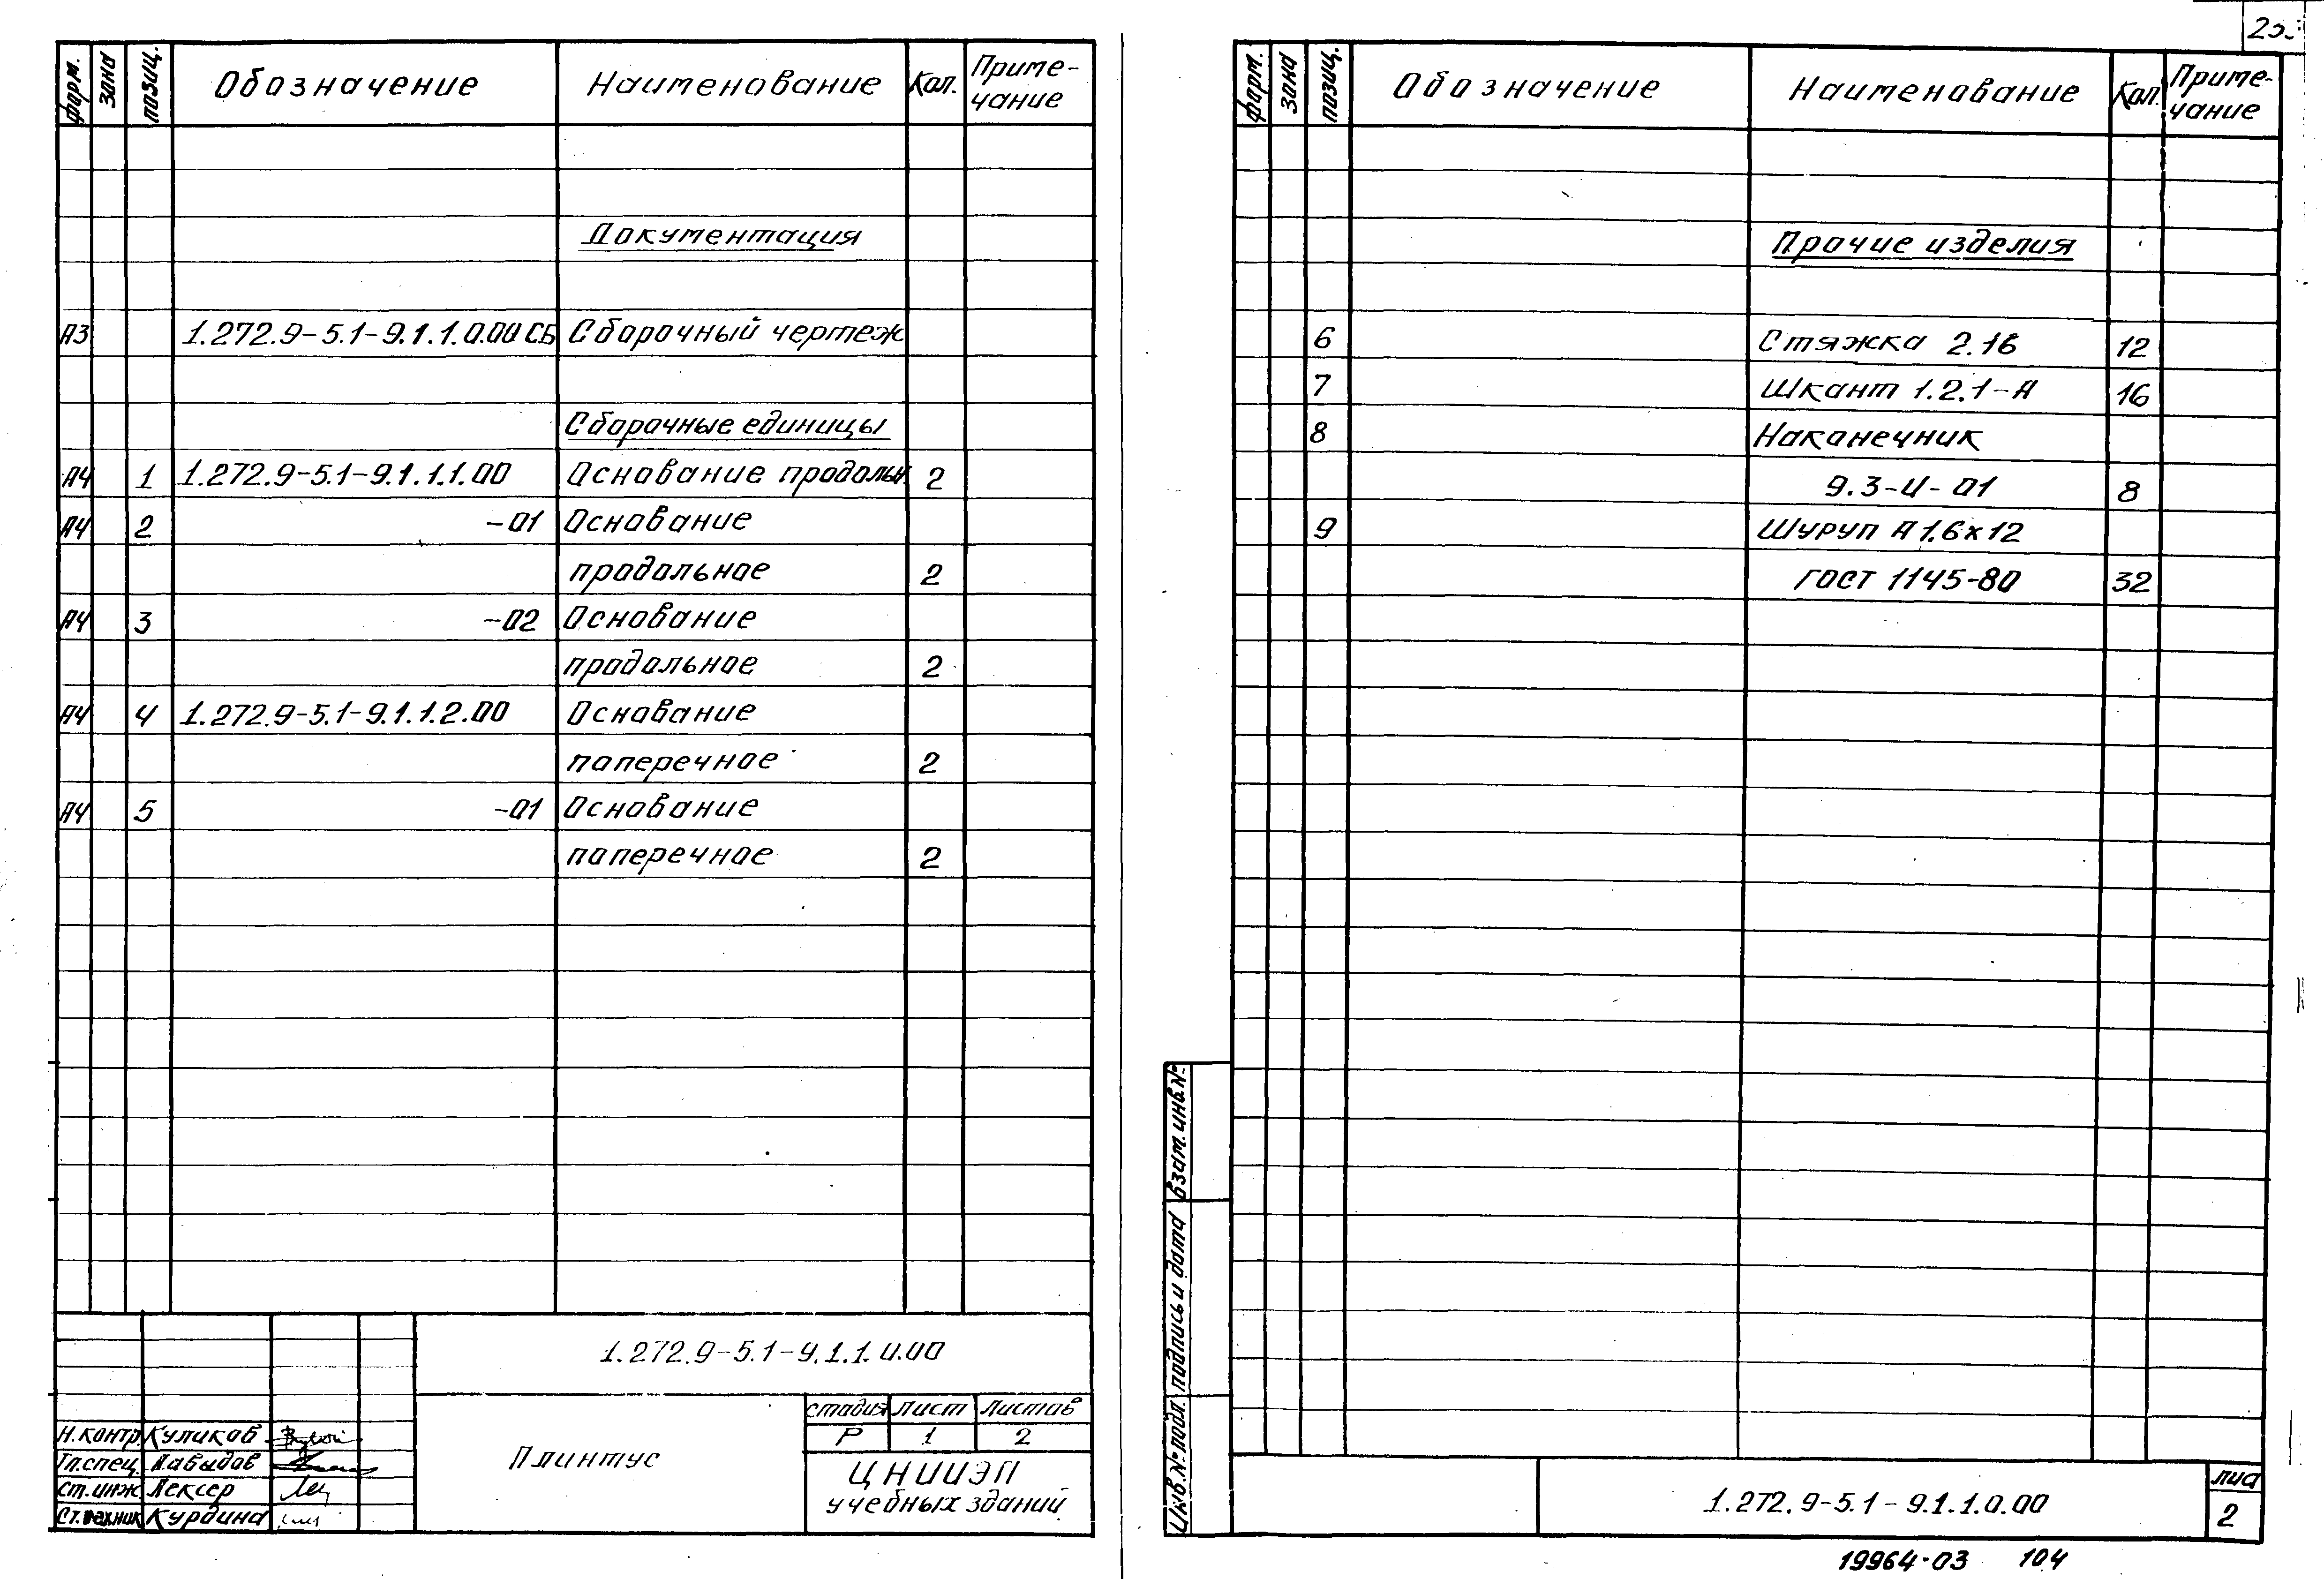 форм.
зона
позиц.
Обозначение
Наименование
Кол.
Приме-
чание
Документация
А3 1.272.9-5.1-9.1.1.0.00 СБ Сборочный чертеж
Сборочные единицы
А4 1 1.272.9-5.1-9.1.1.1.00 Основание продольн. 2
А4 2 -01 Основание
продольное 2
А4 3 -02 Основание
продольное 2
А4 4 1.272.9-5.1-9.1.1.2.00 Основание
поперечное 2
А4 5 -01 Основание
поперечное 2
1.272.9-5.1-9.1.1.0.00
Плинтус
стадия Лист Листов
Р 1 2
ЦНИИЭП
учебных зданий
Н.контр. Куликов
Гл.спец. Давыдов
Ст.инж. Лексер
Ст.техник Курдина
форм.
зона
позиц.
Обозначение
Наименование
Кол.
Приме-
чание
Прочие изделия
6 Стяжка 2.16 12
7 Шкант 1.2.1-А 16
8 Наконечник
9.3-И-01 8
9 Шуруп А 1.6х12
ГОСТ 1145-80 32
Взам. инв.№
Подпись и дата
Инв.№ подл.
1.272.9-5.1-9.1.1.0.00
Лис
2
19964-03 104